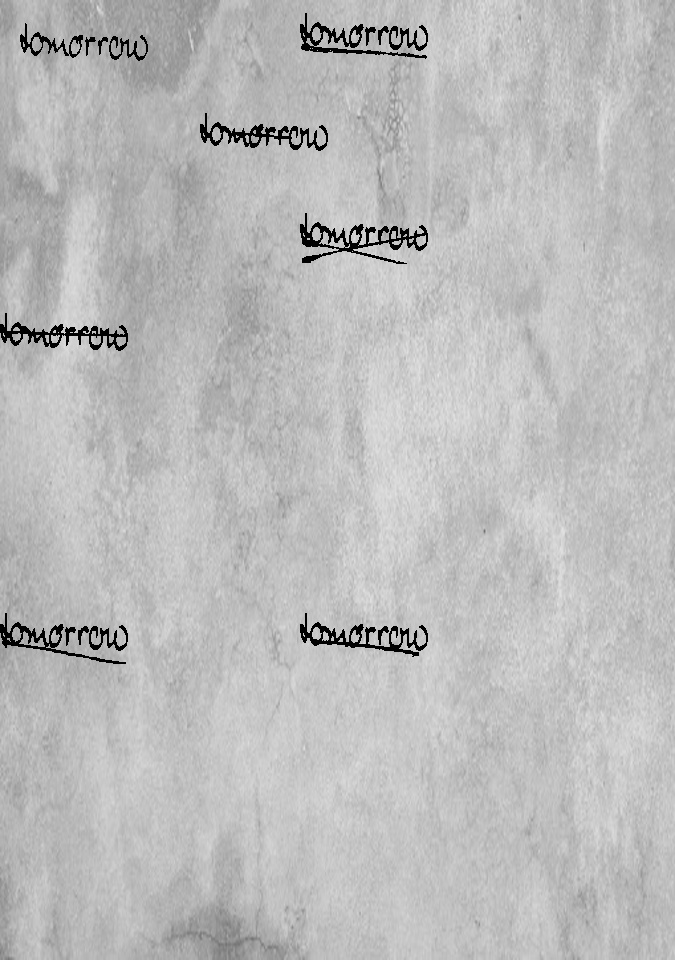 tomorrow tomorrow
tomorrow
tomorrow
tomorrow
tomorrow tomorrow